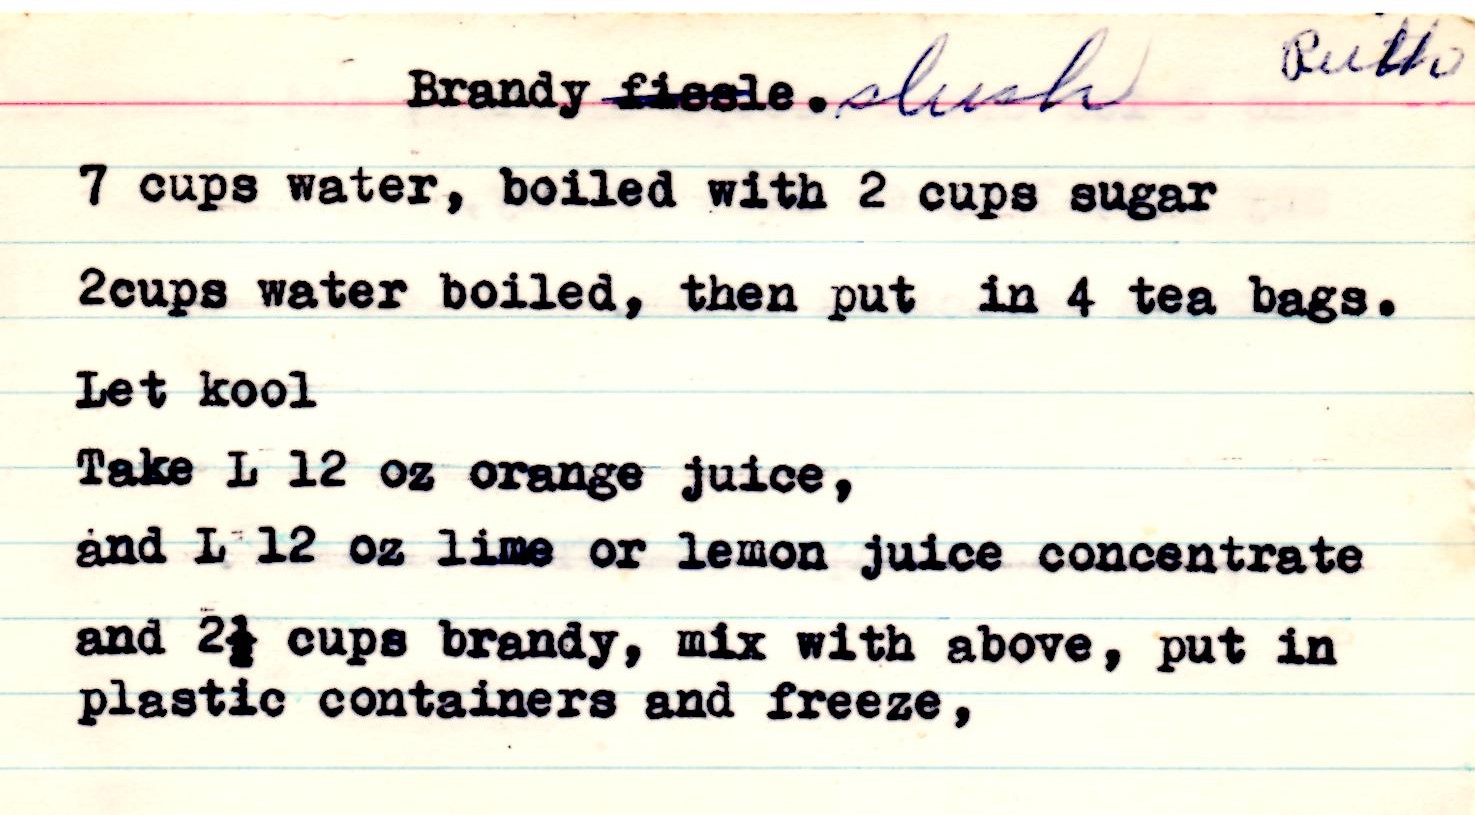 Brandy fissle. slush Ruth
7 cups water, boiled with 2 cups sugar
2cups water boiled, then put in 4 tea bags.
Let kool
Take L 12 oz orange juice,
and L 12 oz lime or lemon juice concentrate
and 2½ cups brandy, mix with above, put in
plastic containers and freeze,